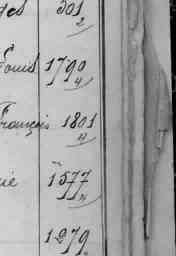 501
2
Louis 1790
4
François 1801
4
ie 1577
4
1279